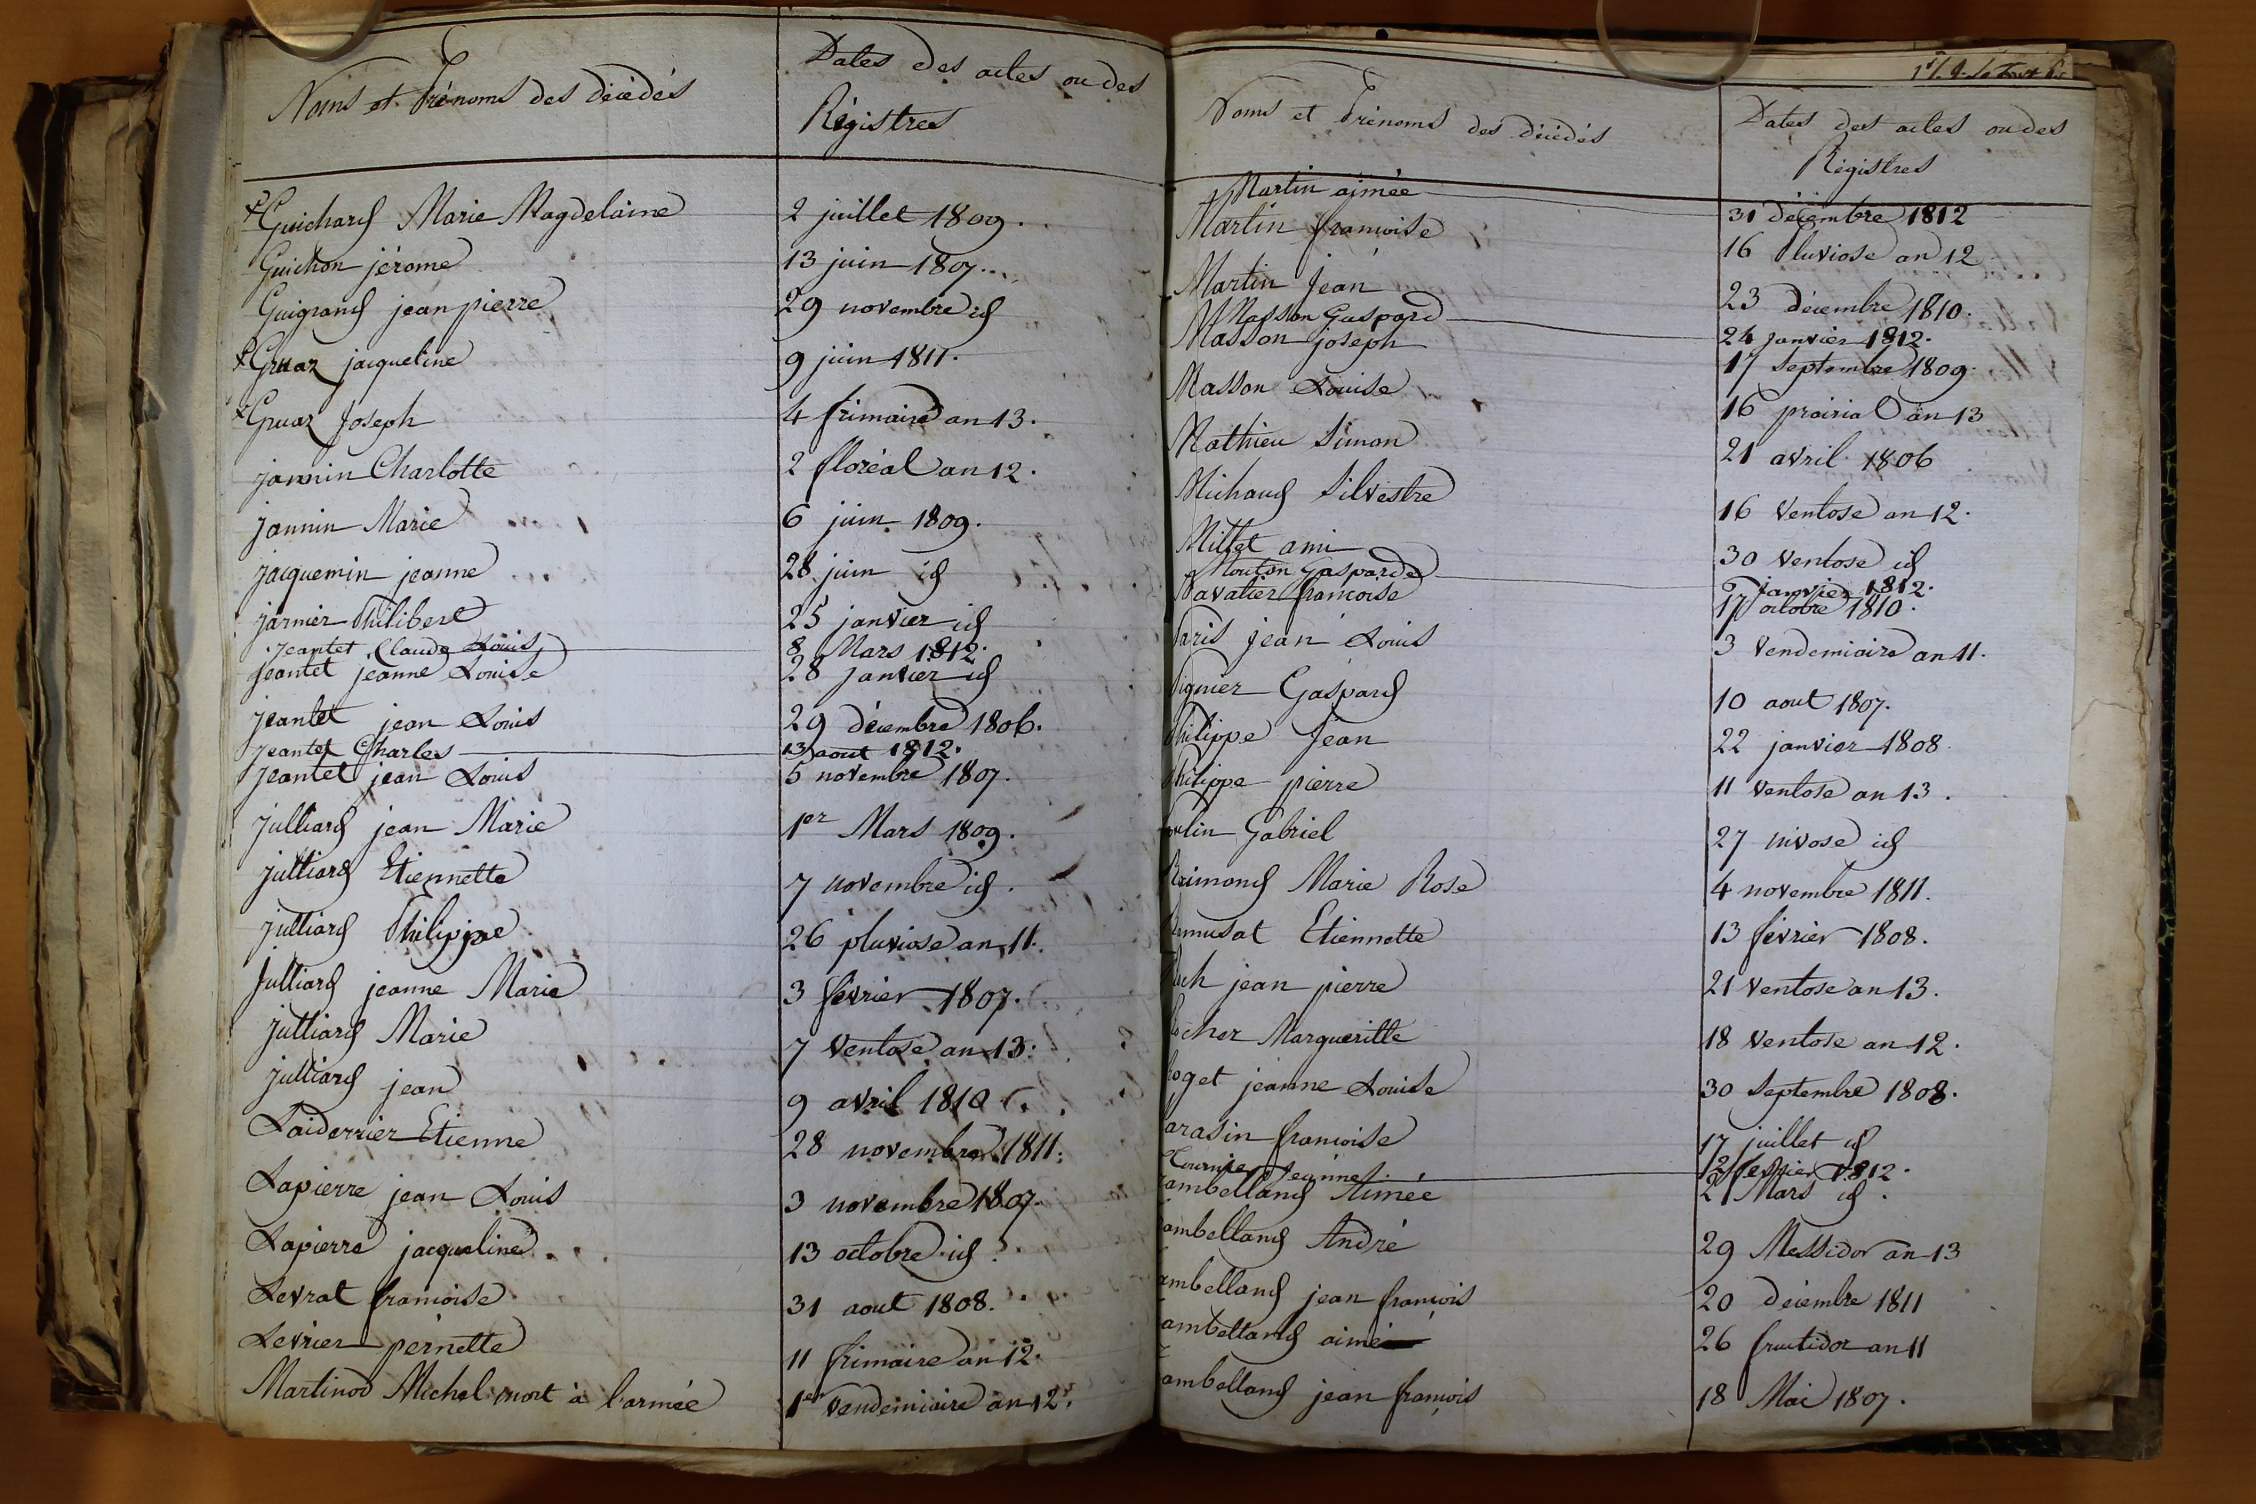 Noms et Prénoms des décédés Dates des actes ou des
Régistres
Guichard Marie Magdelaine 2 juillet 1809.
Guichon jérome 13 juin 1807..
Guigrand jean pierre 29 novembre id
Gruaz jacqueline 9 juin 1811.
Gruaz Joseph 4 frimaire an 13.
jannin Charlotte 2 floréal an 12.
jannin Marie 6 juin 1809.
jacquemin jeanne 28 juin id
jarnier Philibert 25 janvier id
Jeantet Claude Louis 8 Mars 1812.
jeantet jeanne Louise 28 janvier id
jeantet jean Louis 29 décembre 1806.
Jeantet Charles 13 aout 1812.
jeantet jean Louis 5 novembre 1807.
julliard jean Marie 1er Mars 1809.
julliard Etiennette 7 novembre id.
julliard Philippe 26 pluviose an 11.
julliard jeanne Marie 3 fevrier 1807.
julliard Marie 7 Ventose an 13.
julliard jean 9 avril 1810
Laiderrier Etienne 28 novembre 1811.
Lapierre jean Louis 3 novembre 1807.
Lapierre jacqueline 13 octobre id
Levrat francoise 31 aout 1808.
Levrier pernette 11 frimaire an 12.
Martinod Michel mort à l'armée 1er Vendemiaire an 12.
Noms et Prénoms des décédés Dates des actes ou des
Régistres
Martin aimée 31 décembre 1812
Martin francoise 16 Pluviose an 12
Martin Jean 23 décembre 1810.
Masson Gaspard 24 janvier 1812.
Masson joseph 17 septembre 1809.
Masson Louise 16 prairial an 13
Mathieu Simon 21 avril 1806
Michaud Silvestre 16 Ventose an 12.
Millet ami 30 ventose id
Mouton Gasparde 6 janvier 1812.
Pavatier francoise 17 octobre 1810.
Paris jean Louis 3 Vendemiaire an 11.
Pignier Gaspard 10 aout 1807.
Philippe Jean 22 janvier 1808.
Philippe pierre 11 Ventose an 13.
Gabriel 27 nivose id
Reimond Marie Rose 4 novembre 1811.
Remusat Etiennette 13 février 1808.
jean pierre 21 Ventose an 13.
Rocher Margueritte 18 Ventose an 12.
Roget jeanne Louise 30 septembre 1808.
arasin francoise 17 juillet id
Tournier Jeanne 12 fevrier 1812.
ambelland Aimée 21 Mars id.
ambelland André 29 Messidor an 13
ambelland jean francois 20 décembre 1811
ambelland aimé 26 fructidor an 11
ambelland jean francois 18 Mai 1807.